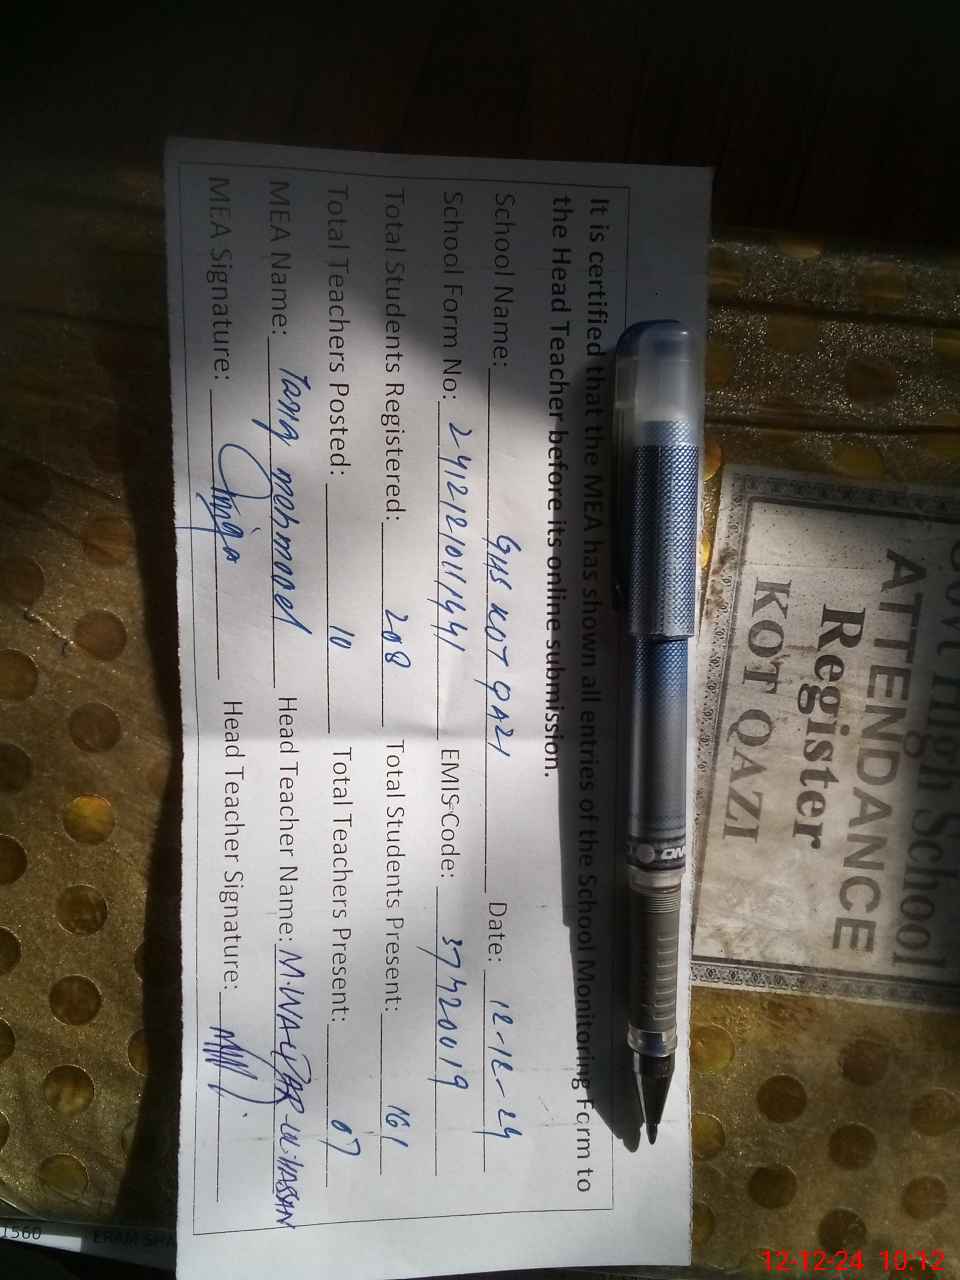 It is certified that the MEA has shown all entries of the School Monitoring Form to
the Head Teacher before its online submission.
School Name: GHS KOT QAZI Date: 12-12-24
School Form No: 24121210111441 EMIS Code: 37420019
Total Students Registered: 208 Total Students Present: 161
Total Teachers Posted: 10 Total Teachers Present: 07
MEA Name: Tariq mahmood Head Teacher Name: M.WAQAR-UL-HASSAN
MEA Signature: Head Teacher Signature:
Govt High School
ATTENDANCE
Register
KOT QAZI
1560
12-12-24 10:12